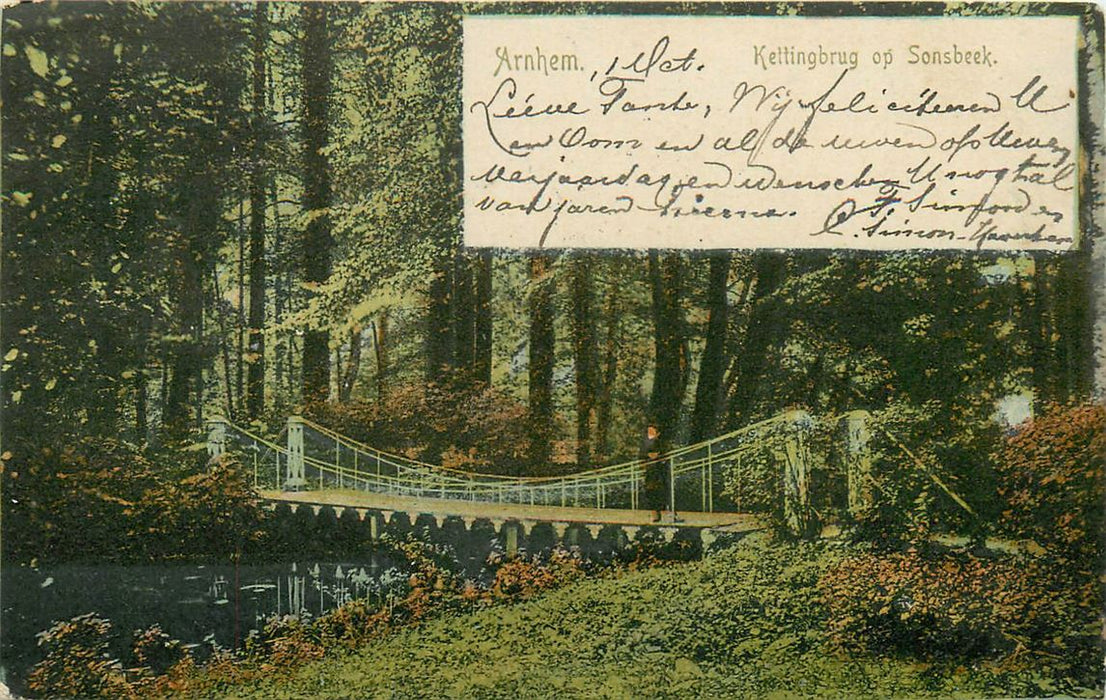 Arnhem. 1 Oct. Kettingbrug op Sonsbeek.
Lieve Tante, Wij feliciteeren U
en Oom en al de uwen
verjaardag en wenschen U nog tal
van jaren hierna. F. Simon en
C. Simon-